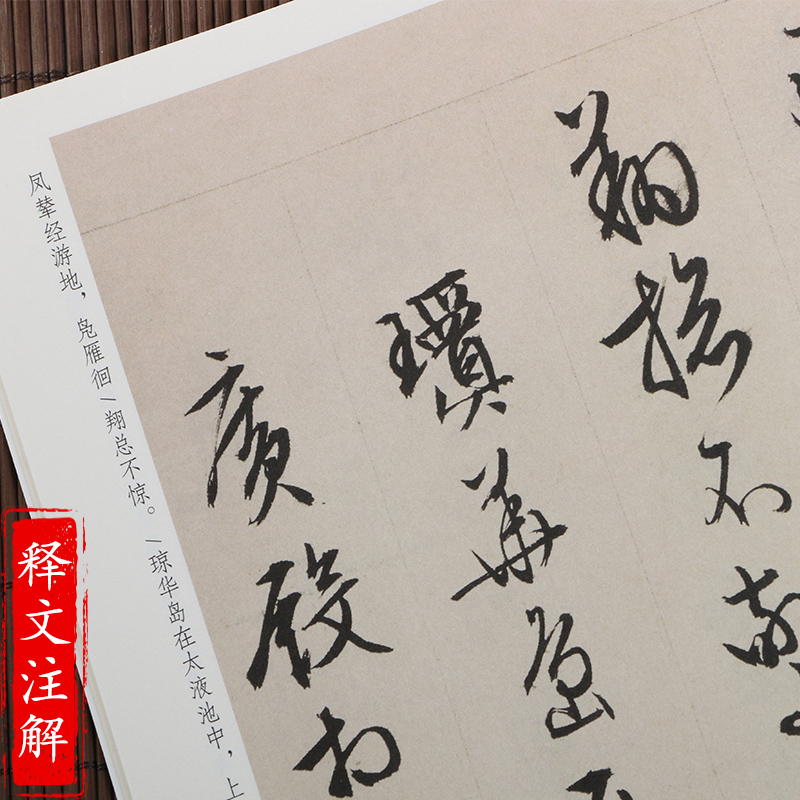 翔揔不驚
瓊華島
廣殿相
凤辇经游地，凫雁徊/翔总不惊。/琼华岛在太液池中，上
释文注解